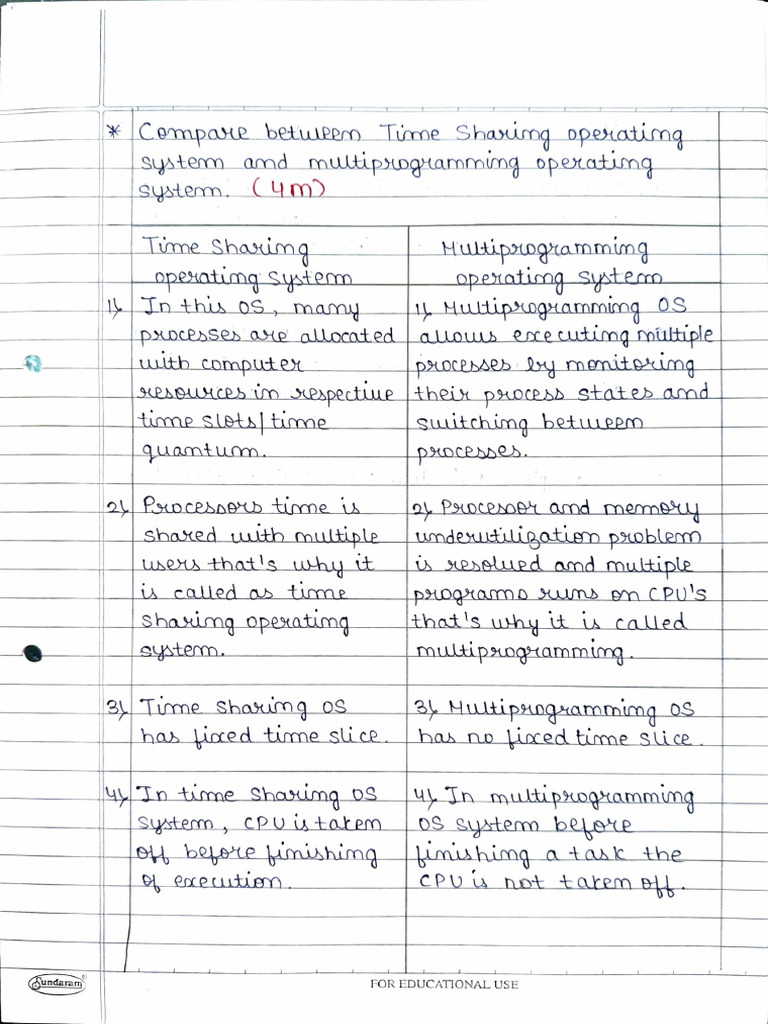 * Compare between Time Sharing operating
system and multiprogramming operating
system. (4m)
Time Sharing
operating System
1) In this OS, many
processes are allocated
with computer
resources in respective
time slots/time
quantum.
2) Processors time is
shared with multiple
users that's why it
is called as time
sharing operating
system.
3) Time sharing OS
has fixed time slice.
4) In time sharing OS
system, CPU is taken
off before finishing
of execution.
Multiprogramming
operating system
1) Multiprogramming OS
allows executing multiple
processes by monitoring
their process states and
switching between
processes.
2) Processor and memory
underutilization problem
is resolved and multiple
programs runs on CPU's
that's why it is called
multiprogramming.
3) Multiprogramming OS
has no fixed time slice.
4) In multiprogramming
OS system before
finishing a task the
CPU is not taken off.
Sundaram®
FOR EDUCATIONAL USE